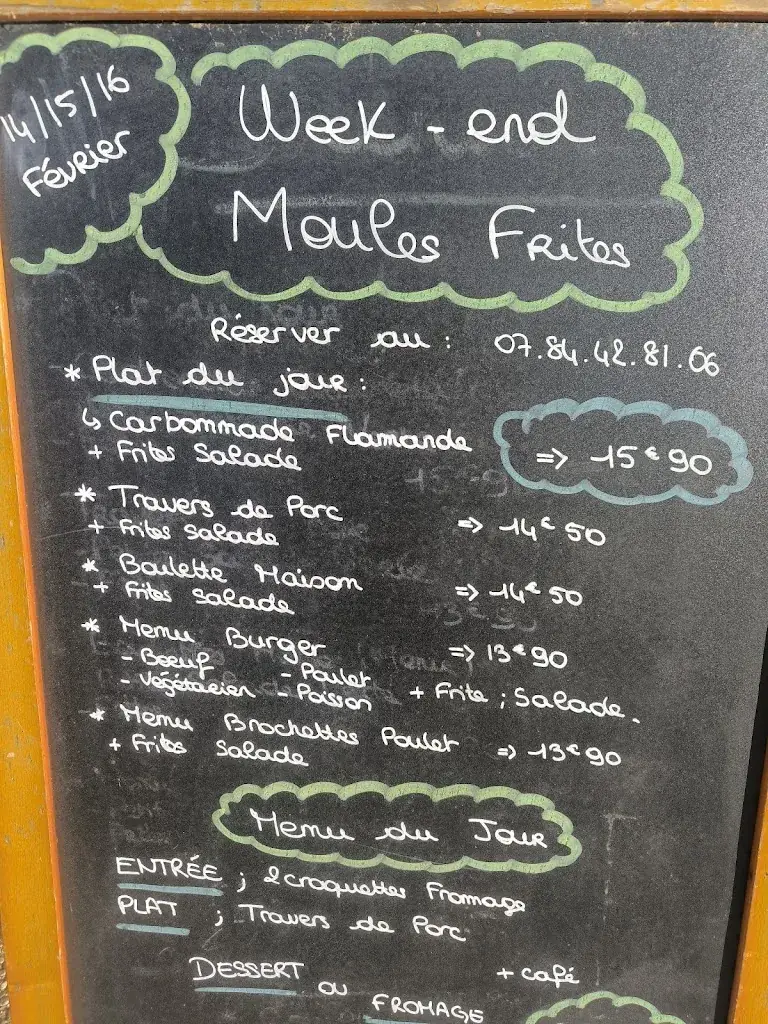 14/15/16
Février
Week-end
Moules Frites
Réserver au : 07.84.42.81.66
* Plat du jour :
↳ Carbommade Flamande
+ Frites Salade
=> 15€90
* Travers de Porc => 14€50
+ Frites Salade
* Boulette Maison => 14€50
+ Frites Salade
* Menu Burger => 13€90
- Boeuf - Poulet
- Végétarien - Poisson + Frite ; Salade.
* Menu Brochettes Poulet => 13€90
+ Frites Salade
Menu du Jour
ENTRÉE ; 2 croquettes Fromage
PLAT ; Travers de Porc
DESSERT + café
ou
FROMAGE